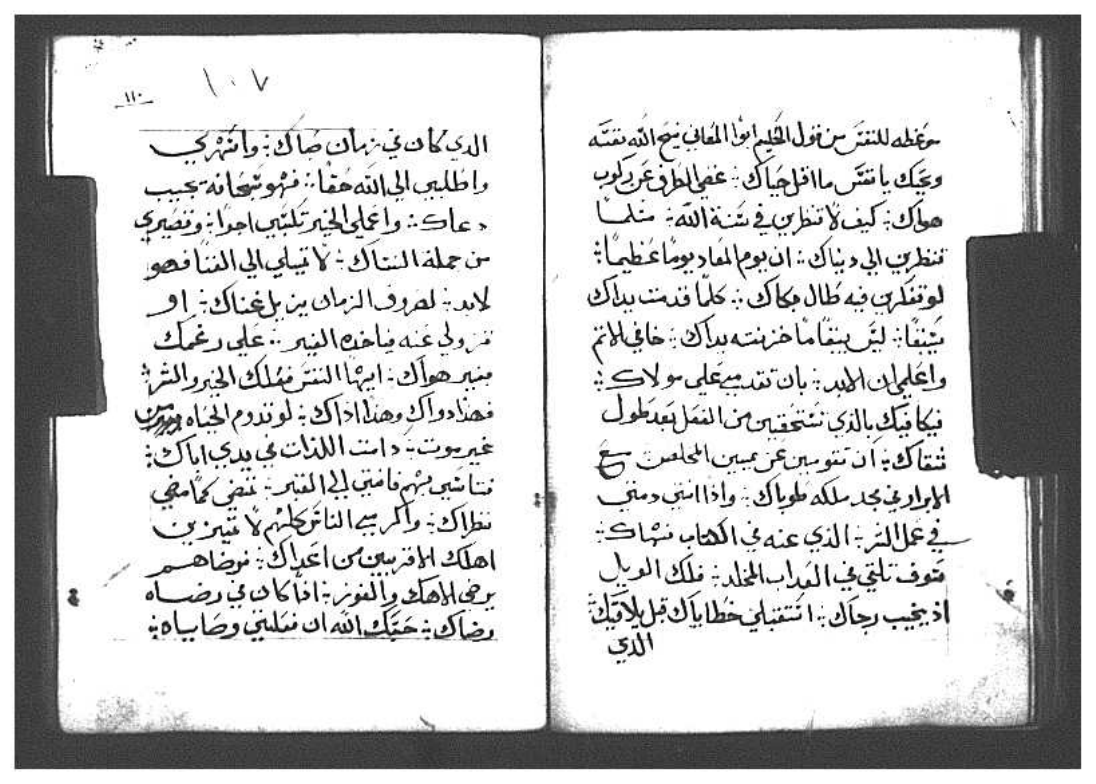 موعظه للنفس من قول الحكيم ابوا المعاني نيح الله نفسه
ويحك يا نفس ما اقل حياك ∴ غضي الطرف عن ركوب
هواك ∴ كيف لا تنظرين في سنة الله ∴ مثلما
تنظرين الي دنياك ∴ ان يوم المعاد يومًا عظيمًا ∴
لو تفكرين فيه طال بكاك ∴ كلما قدمت يداك
يبقا ∴ ليس يبقا ما خزنته يداك ∴ خافي الاثم
واعلمي ان لابد ∴ بان تقدمي علي مولاك ∴
فيكافيك بالذي تستحقين من الفعل بعد طول
شقاك ∴ ان تقومين عن يمين المخلص مع
الابرار في مجد ملكه طوباك ∴ واذا انتي دمتي
في عمل الشر ∴ الذي عنه في الكتاب نهاك ∴
فسوف تلقي في العداب المخلد ∴ فلك الويل
اذ يخيب رجاك ∴ استقبلي خطاياك قبل يلاقيك
الدي
١٠٧
١١٠
الدي كان في زمان صباك ∴ وانهري
واطلبي الي الله حقا ∴ فهو سبحانه يجيب
دعاك ∴ واعملي الخير تكسبي اجرا ∴ وتصيري
من جملة النساك ∴ لا تميلي الي الغنا فهو
لابد ∴ لصروف الزمان يزيل غناك ∴ او
تزولي عنه فياخده الغير ∴ علي رغمك
بغير هواك ∴ ايها النفس فعلك الخير والشر ∴
فهذا دواك وهذا اداك ∴ لو تدوم الحياه من
غير موت ∴ دامت اللذات في يدي اباك ∴
فتاسي بهم فامضي الي القبر ∴ تمضي كما مضي
نظراك ∴ واكرمي الناس كلهم لا تميزين
اهلك الاقربين من اعداك ∴ فرضاهم
يرضي الاهك والفوز ∴ اذا كان في رضاه
رضاك ∴ حسبك الله ان قبلتي وصاياه ∴